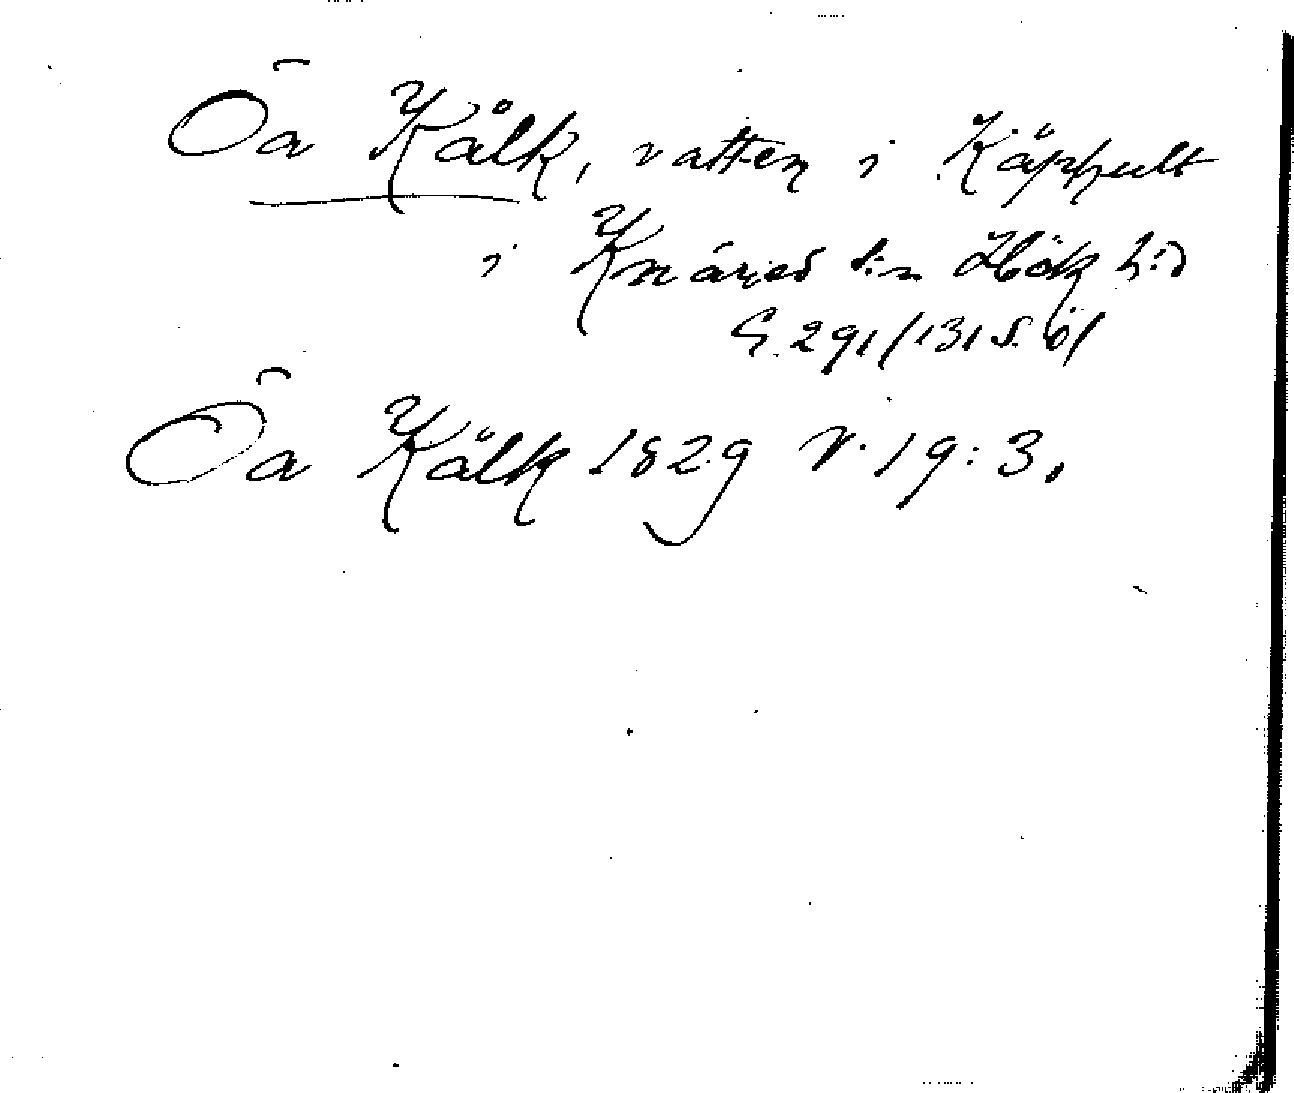 Öa Kålk, vatten i Käphult
i Knäred s:n Höks h:d
G. 291/131 S. öl
Öa Kålk 1829 V. 19:3.